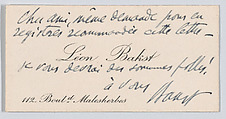 Cher ami, même demande pour en
registrer recommandée cette lettre –
Léon Bakst
Je vous devrai des sommes folles!
à vous
Bakst
112, Boul.d Malesherbes